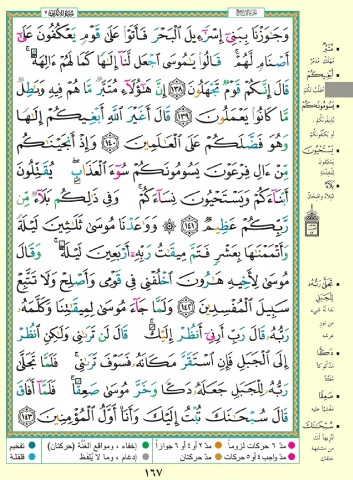 وَجَٰوَزْنَا بِبَنِىٓ إِسْرَٰٓءِيلَ ٱلْبَحْرَ فَأَتَوْا۟ عَلَىٰ قَوْمٍ يَعْكُفُونَ عَلَىٰٓ
أَصْنَامٍ لَّهُمْ ۚ قَالُوا۟ يَٰمُوسَى ٱجْعَل لَّنَآ إِلَٰهًا كَمَا لَهُمْ ءَالِهَةٌ ۚ
قَالَ إِنَّكُمْ قَوْمٌ تَجْهَلُونَ ١٣٨ إِنَّ هَٰٓؤُلَآءِ مُتَبَّرٌ مَّا هُمْ فِيهِ وَبَٰطِلٌ
مَّا كَانُوا۟ يَعْمَلُونَ ١٣٩ قَالَ أَغَيْرَ ٱللَّهِ أَبْغِيكُمْ إِلَٰهًا
وَهُوَ فَضَّلَكُمْ عَلَى ٱلْعَٰلَمِينَ ١٤٠ وَإِذْ أَنجَيْنَٰكُم
مِّنْ ءَالِ فِرْعَوْنَ يَسُومُونَكُمْ سُوٓءَ ٱلْعَذَابِ ۖ يُقَتِّلُونَ
أَبْنَآءَكُمْ وَيَسْتَحْيُونَ نِسَآءَكُمْ ۚ وَفِى ذَٰلِكُم بَلَآءٌ مِّن
رَّبِّكُمْ عَظِيمٌ ١٤١ ۞ وَوَٰعَدْنَا مُوسَىٰ ثَلَٰثِينَ لَيْلَةً
وَأَتْمَمْنَٰهَا بِعَشْرٍ فَتَمَّ مِيقَٰتُ رَبِّهِۦٓ أَرْبَعِينَ لَيْلَةً ۚ وَقَالَ
مُوسَىٰ لِأَخِيهِ هَٰرُونَ ٱخْلُفْنِى فِى قَوْمِى وَأَصْلِحْ وَلَا تَتَّبِعْ
سَبِيلَ ٱلْمُفْسِدِينَ ١٤٢ وَلَمَّا جَآءَ مُوسَىٰ لِمِيقَٰتِنَا وَكَلَّمَهُۥ
رَبُّهُۥ قَالَ رَبِّ أَرِنِىٓ أَنظُرْ إِلَيْكَ ۚ قَالَ لَن تَرَىٰنِى وَلَٰكِنِ ٱنظُرْ
إِلَى ٱلْجَبَلِ فَإِنِ ٱسْتَقَرَّ مَكَانَهُۥ فَسَوْفَ تَرَىٰنِى ۚ فَلَمَّا تَجَلَّىٰ
رَبُّهُۥ لِلْجَبَلِ جَعَلَهُۥ دَكًّا وَخَرَّ مُوسَىٰ صَعِقًا ۚ فَلَمَّآ أَفَاقَ
قَالَ سُبْحَٰنَكَ تُبْتُ إِلَيْكَ وَأَنَا۠ أَوَّلُ ٱلْمُؤْمِنِينَ ١٤٣
مُتَبَّرٌ
أَبْغِيكُمْ
يَسُومُونَكُمْ
يَسْتَحْيُونَ
بَلَآءٌ
تَجَلَّىٰ رَبُّهُۥ
لِلْجَبَلِ
دَكًّا
صَعِقًا
سُبْحَٰنَكَ
مدّ ٦ حركات لزوماً
مدّ ٢ أو ٤ أو ٦ جوازاً
إخفاء، ومواقع الغُنَّة (حركتان)
تفخيم
مدّ واجب ٤ أو ٥ حركات
مدّ حركتان
إدغام، وما لا يُلفَظ
قلقلة
١٦٧